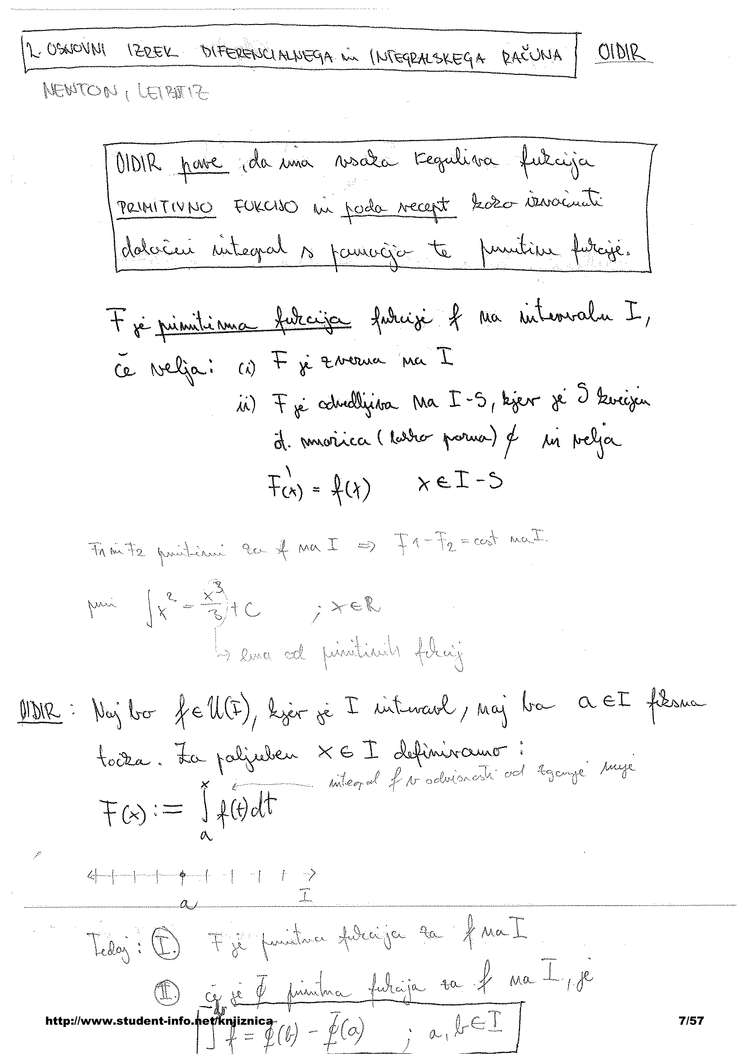 2. OSNOVNI IZREK DIFERENCIALNEGA in INTEGRALSKEGA RAČUNA OIDIR
NEWTON, LEIBNIZ
OIDIR pove, da ima vsaka regulirna fukcija
PRIMITIVNO FUKCIJO in poda recept kako izračunati
določeni integral s pomočjo te primitivne fukcije.
F je primitivna fukcija fukcije f na intervalu I,
če velja: (i) F je zvezna na I
ii) F je odvedljiva na I-S, kjer je S
š. množica (lahko prazna) ∅ in velja
F'(x) = f(x) x ∈ I-S
F1 in F2 primitivni za f na I ⇒ F1-F2 = cost na I.
∫x² = x³/3 + C ; x∈R
↳ ena od primitivnih fukcij
OIDIR: Naj bo f∈U(I), kjer je I interval, naj bo a∈I fiksna
točka. Za poljuben x∈I definiramo:
integral f v odvisnosti od zgornje meje
F(x) := ∫ₐˣ f(t)dt
a I
Tedaj: I. F je primitivna fukcija za f na I
II. če je Φ primitivna fukcija za f na I, je
∫ f = Φ(b) - Φ(a) ; a, b∈I
http://www.student-info.net/knjiznica 7/57